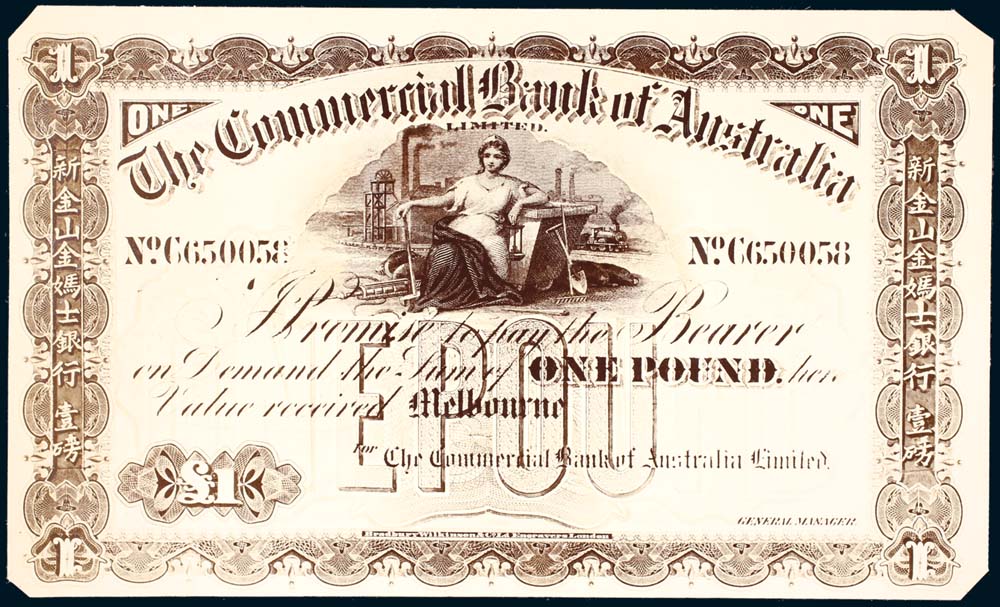 1 1
The Commercial Bank of Australia
LIMITED.
ONE ONE
新金山金媽士銀行壹磅
新金山金媽士銀行壹磅
No. C650058 No. C650058
I Promise to pay the Bearer
on Demand the Sum of ONE POUND. here
Value received Melbourne
For The Commercial Bank of Australia Limited.
£1
GENERAL MANAGER.
Bradbury Wilkinson & Co. Ld. Engravers London
1 1